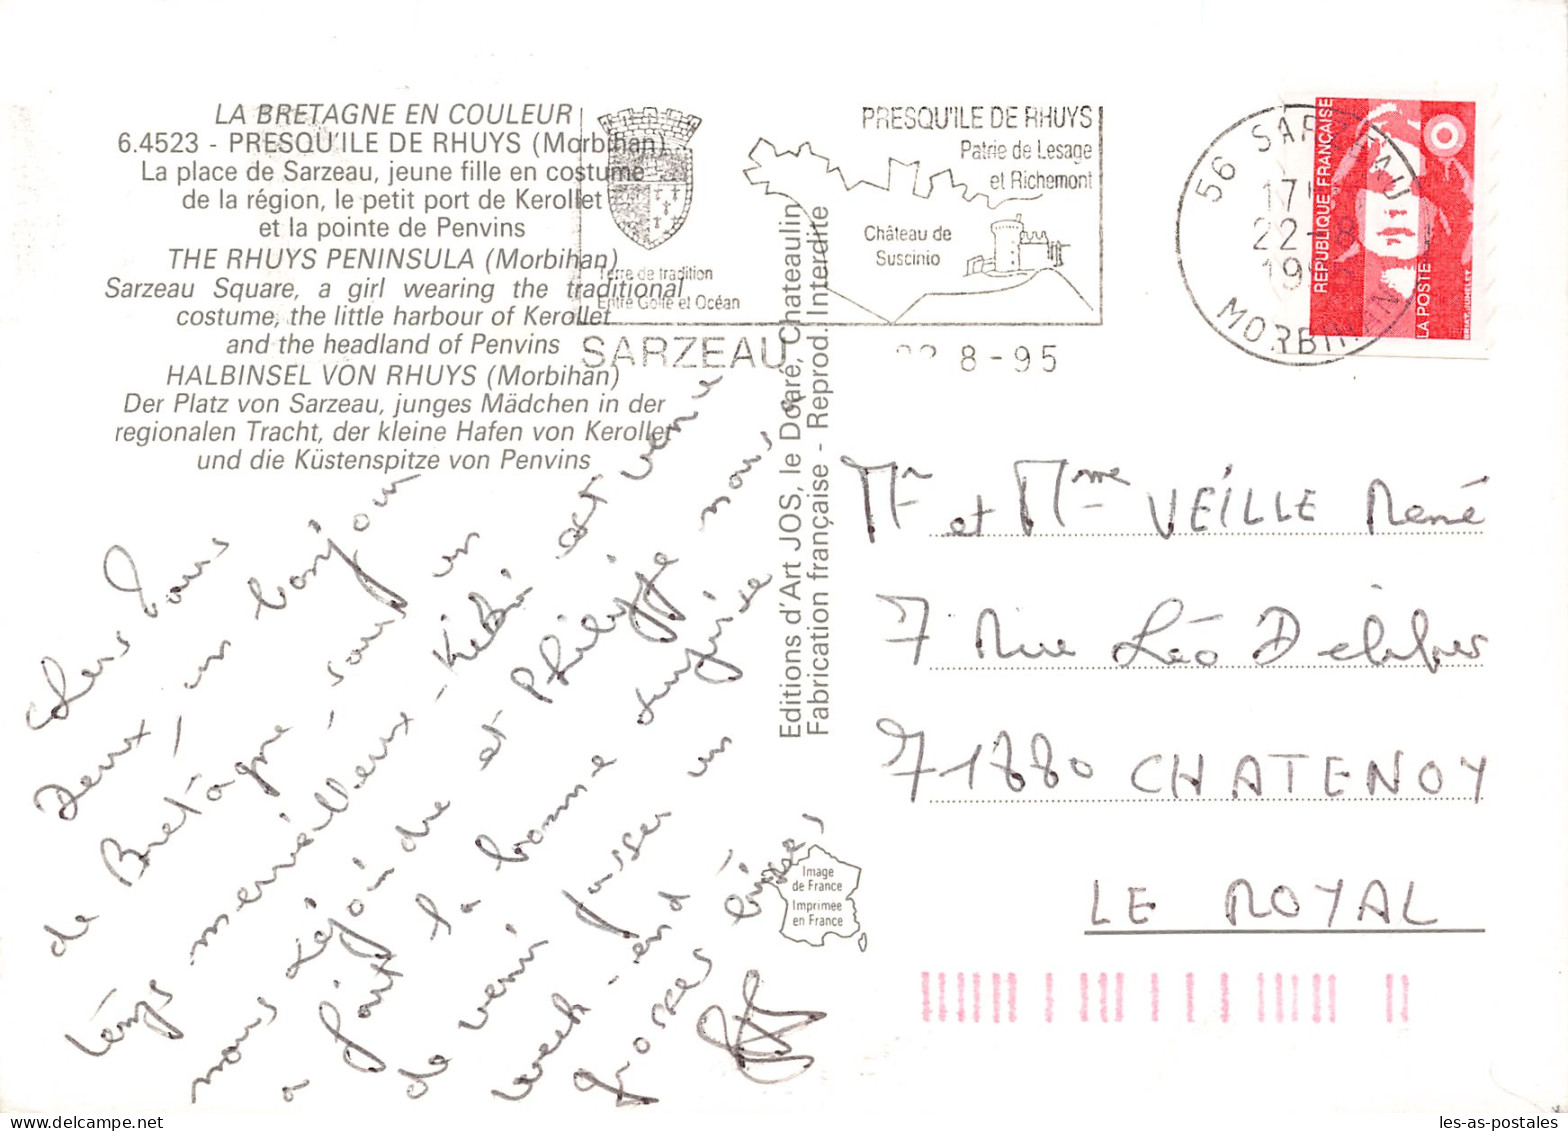 LA BRETAGNE EN COULEUR
6.4523 - PRESQU'ILE DE RHUYS (Morbihan)
La place de Sarzeau, jeune fille en costume
de la région, le petit port de Kerollet
et la pointe de Penvins
THE RHUYS PENINSULA (Morbihan)
Sarzeau Square, a girl wearing the traditional
costume, the little harbour of Kerollet
and the headland of Penvins
HALBINSEL VON RHUYS (Morbihan)
Der Platz von Sarzeau, junges Mädchen in der
regionalen Tracht, der kleine Hafen von Kerollet
und die Küstenspitze von Penvins
Terre de tradition
Entre Golfe et Océan
PRESQU'ILE DE RHUYS
Patrie de Lesage
et Richemont
Château de
Suscinio
SARZEAU
22 8 - 95
56 SARZEAU
17H
22-8
1995
MORBIHAN
REPUBLIQUE FRANÇAISE
LA POSTE
Chers tous
Deux, un bonjour
de Bretagne sous un
temps merveilleux - Kévin est venu
nous rejoindre et Philippe nous
a fait la bonne surprise
de venir passer un
week-end
grosses bises
Editions d'Art JOS, le Doaré, Chateaulin
Fabrication française - Reprod. Interdite
Image
de France
Imprimée
en France
Mr et Mme VEILLE René
7 Rue Léo Délibes
71880 CHATENOY
LE ROYAL
les-as-postales